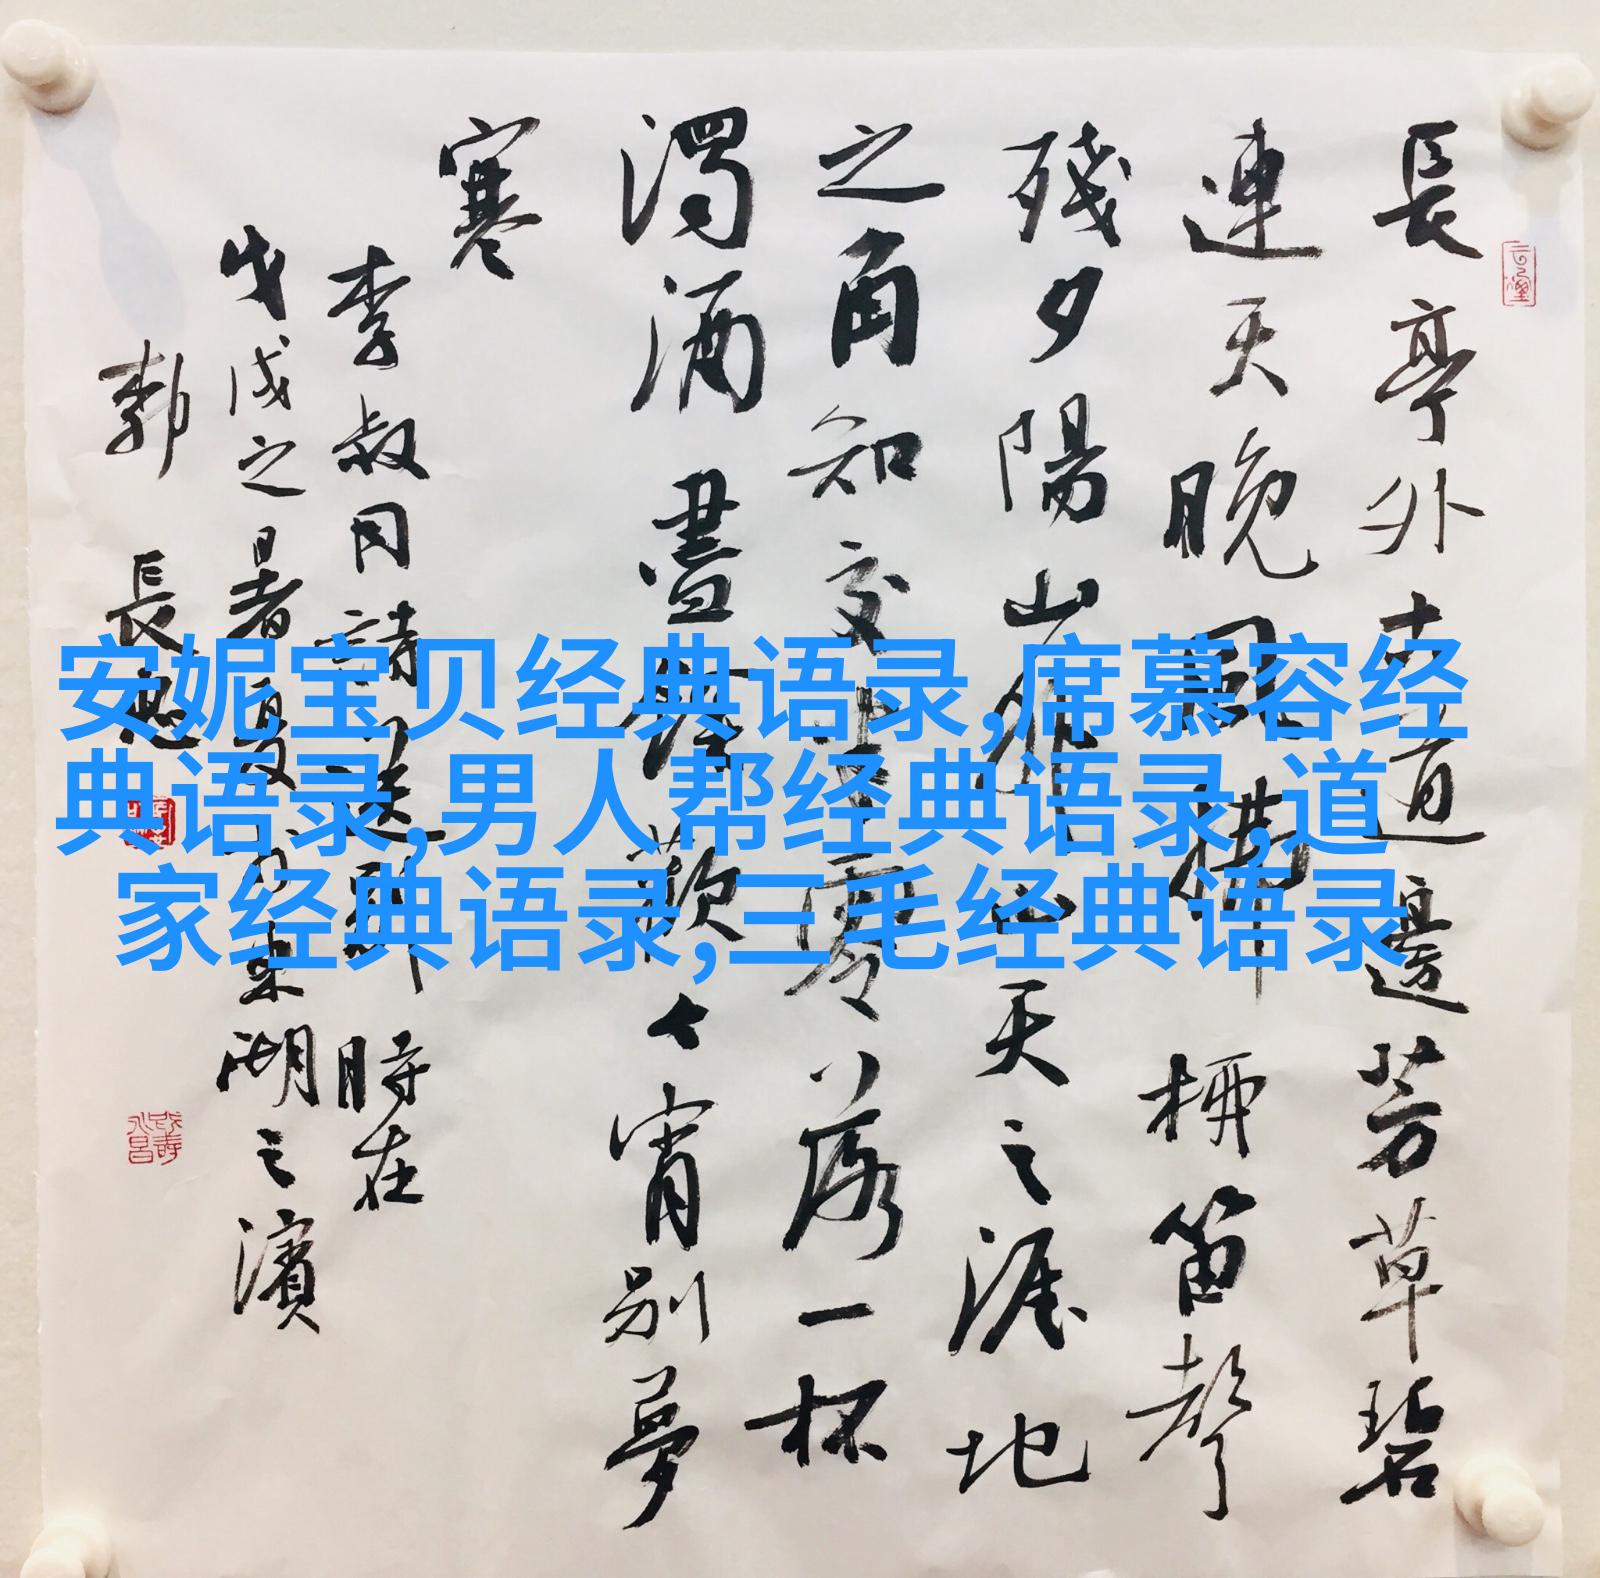 長亭外古道邊芳草碧
連天晚風拂柳笛聲
殘夕陽山外山天之涯地
之角知交半零落一杯
濁酒盡餘歡今宵別夢
寒
李叔同詩送別 時在
戊戌之暑夏東湖之濱
郭長
安妮宝贝经典语录,席慕容经
典语录,男人帮经典语录,道
家经典语录,三毛经典语录